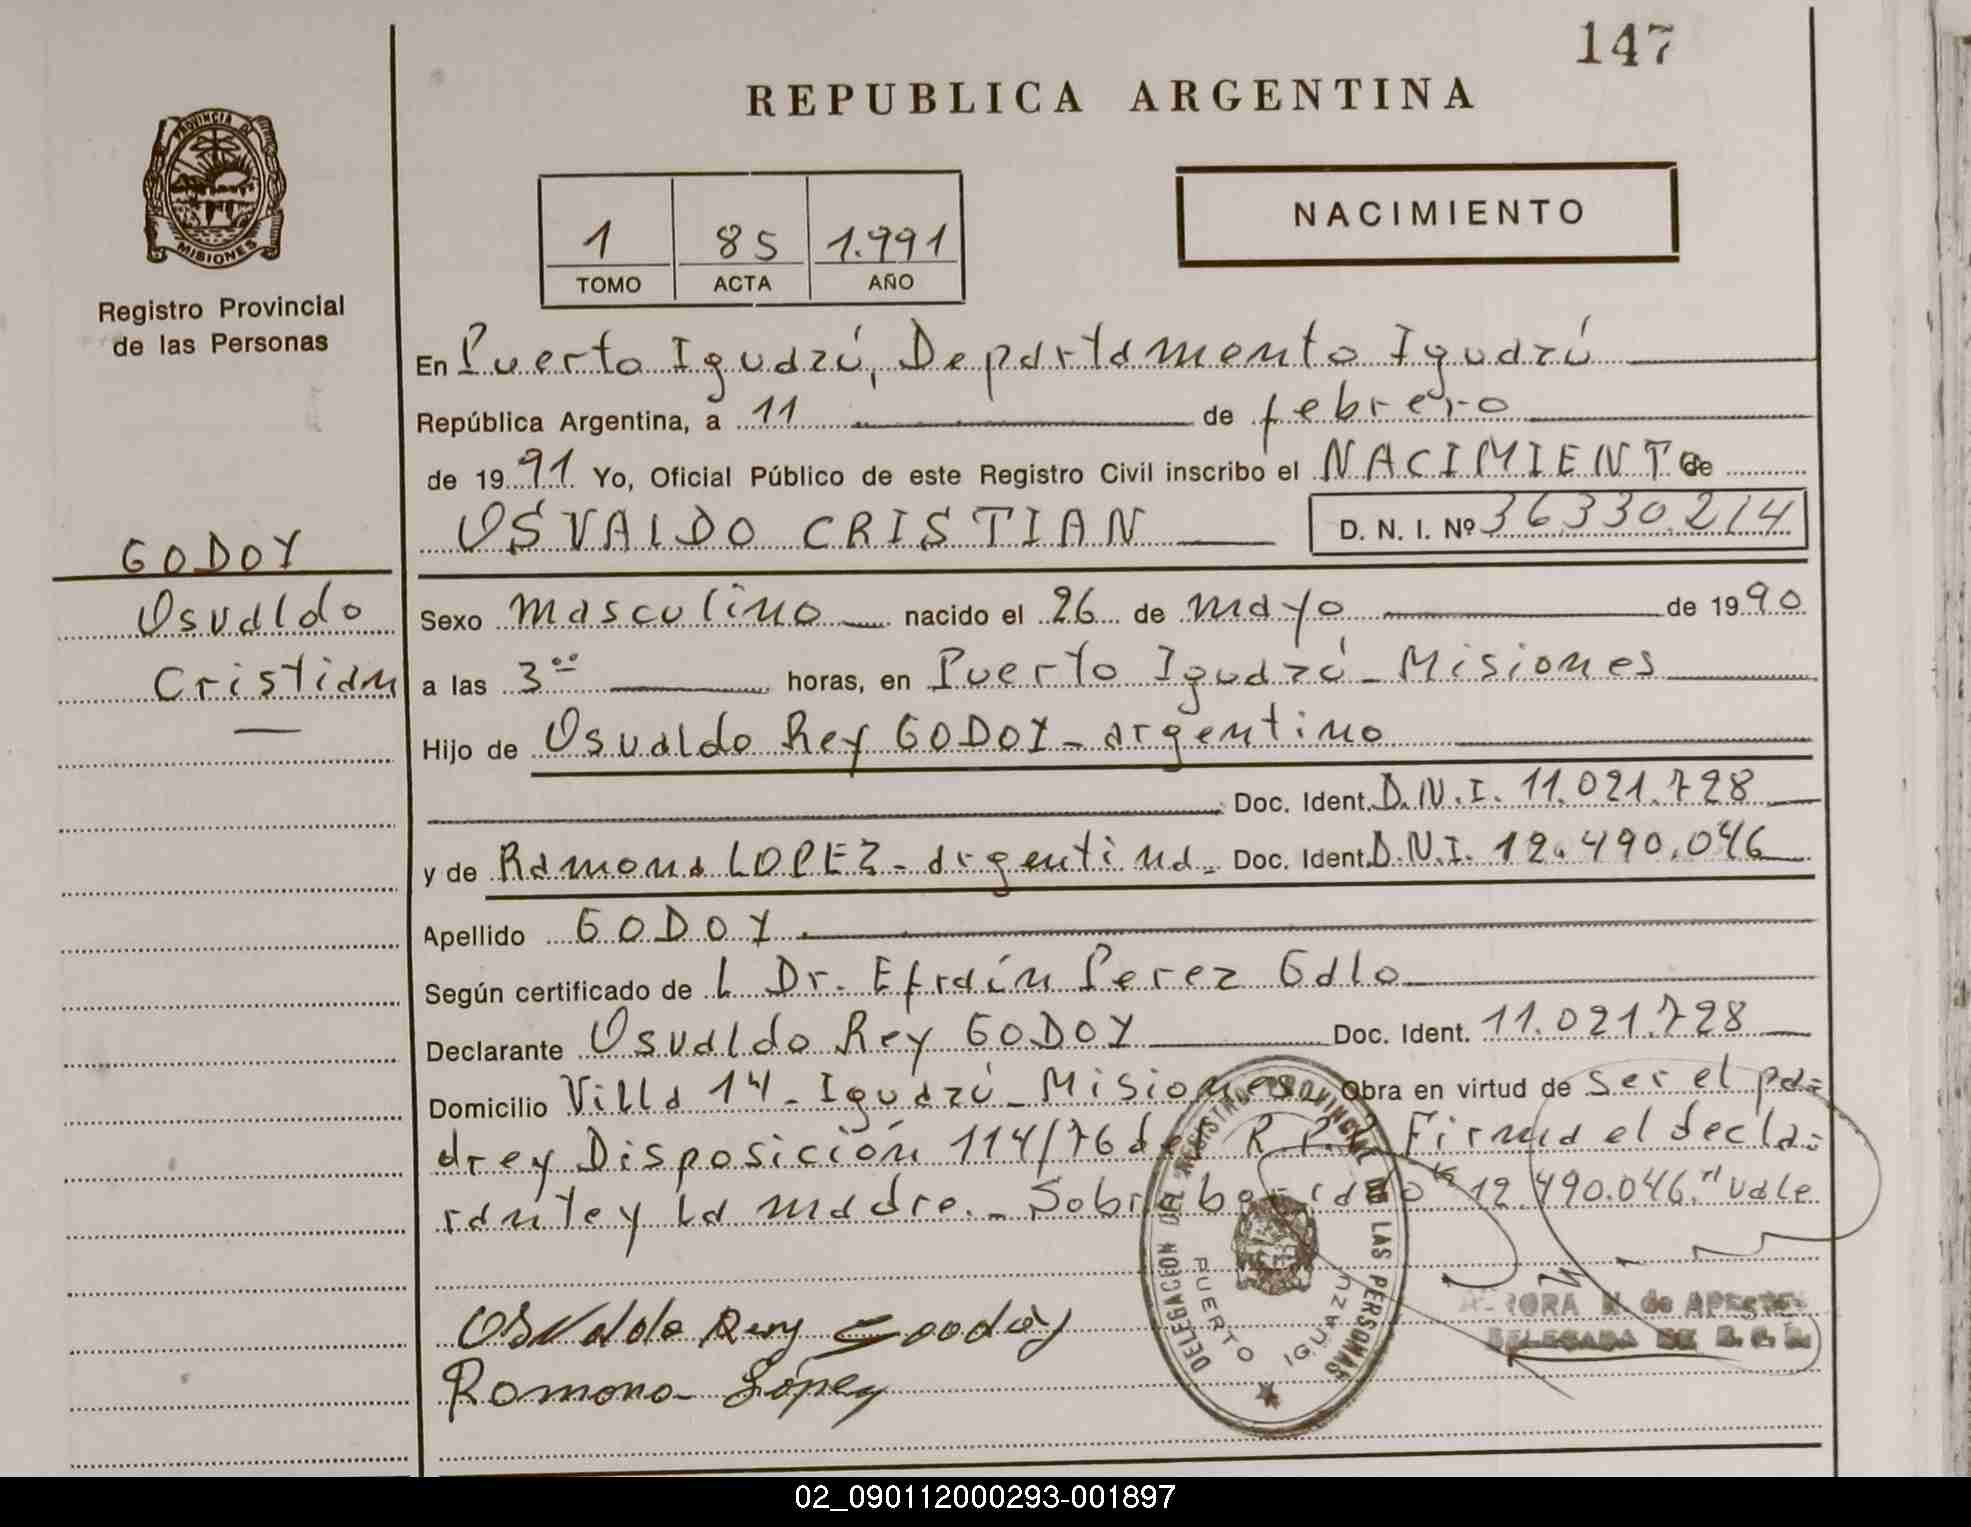 147
REPUBLICA ARGENTINA
PROVINCIA DE
MISIONES
Registro Provincial
de las Personas
NACIMIENTO
1 85 1.991
TOMO ACTA AÑO
En Puerto Iguazú, Departamento Iguazú
República Argentina, a 11 de febrero
de 1991 Yo, Oficial Público de este Registro Civil inscribo el NACIMIENTO de
OSVALDO CRISTIAN D. N. I. Nº 36330.214
GODOY
Osvaldo
Cristian
Sexo masculino nacido el 26 de mayo de 1990
a las 3°° horas, en Puerto Iguazú - Misiones
Hijo de Osvaldo Rey GODOY - argentino
Doc. Ident. D.N.I. 11.021.728
y de Ramona LOPEZ - argentina - Doc. Ident. D.N.I. 12.490.046
Apellido GODOY
Según certificado de L Dr. Efraín Perez Galo
Declarante Osvaldo Rey GODOY Doc. Ident. 11.021.728
Domicilio Villa 14 - Iguazú - Misiones Obra en virtud de ser el pa=
dre y Disposición 114/76 del R.P. Firma el decla=
rante y la madre. - Sobreborrado "12.490.046." vale
Osvaldo Rey Goodoy
Ramona López
DELEGACION DEL REGISTRO PROVINCIAL DE LAS PERSONAS
PUERTO IGUAZU
DELEGADA DE R. C. P.
02_090112000293-001897